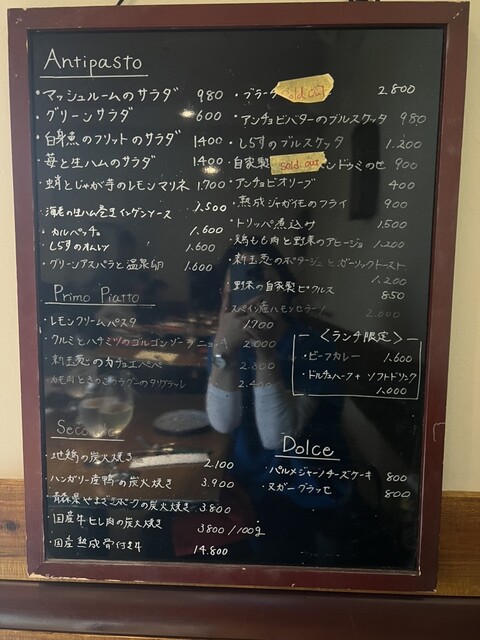 Antipasto
・マッシュルームのサラダ 980
・グリーンサラダ 600
・白身魚のフリットのサラダ 1400
・苺と生ハムのサラダ 1400
・蛸とじゃが芋のレモンマリネ 1.700
・海老の生ハム巻き インゲンソース 1.500
・カルパッチョ 1.600
・しらすのオムレツ 1.600
・グリーンアスパラと温泉卵 1.600
Primo Piatto
・レモンクリームパスタ 1.700
・クルミとハチミツのゴルゴンゾーラニョッキ 2.000
・新玉葱のカチョエペペ
・鴨肉ときのこのラグーのタリアッテレ
Secondo
・地鶏の炭火焼き 2.100
・ハンガリー産鴨の炭火焼き 3.900
・青森県やまざきポークの炭火焼き 3.800
・国産牛ヒレ肉の炭火焼き 3800/100g
・国産熟成骨付き牛 14.800
・ブラータ sold out 2.800
・アンチョビバターのブルスケッタ 980
・しらすのブルスケッタ 1.200
・自家製 sold out 900
・アンチョビオリーブ 400
・熟成ジャガイモのフライ 900
・トリッパ煮込み 1.500
・鶏もも肉と野菜のアヒージョ 1.200
・新玉葱のポタージュとガーリックトースト 1.200
・野菜の自家製ピクルス 850
・スペイン産ハモンセラーノ 2.000
〈ランチ限定〉
・ビーフカレー 1.600
・ドルチェハーフ+ソフトドリンク 1.000
Dolce
・パルメジャーノチーズケーキ 800
・ヌガーグラッセ 800